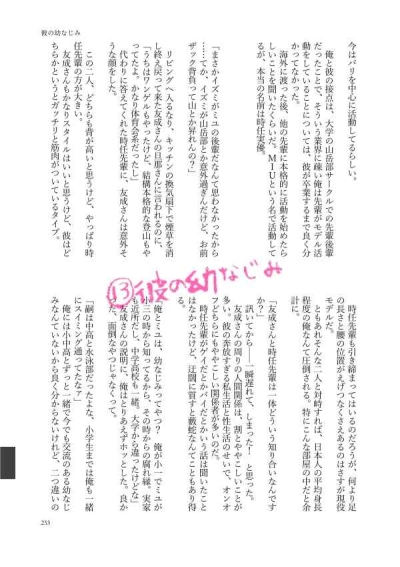 彼の幼なじみ
今はパリを中心に活動してるらしい。
俺と彼の接点は、大学の山岳部サークルでの先輩後輩
だったことで、そういう業界に疎い俺は先輩がモデル活
動をしていることについては、彼が卒業するまで良く分
かってなかった。
海外に渡った後、他の先輩に本格的に活動を始めたら
しいことを聞いたくらいだ。MIUという名で活動して
るが、本当の名前は時任実優。
「まさかイズミがミユの後輩だなんて思わなかったから
……てか、イズミが山岳部とか意外過ぎんだけど、お前
ザック背負って山とか昇れんの？」
リビングへ入るなり、キッチンの換気扇下で煙草を消
し終え戻って来た友成さんの旦那さんに言われるのに、
「うちはワンゲルもやったけど、結構本格的な登山もや
ってたよ。かなり体育会系だったし」
代わりに答えてくれた時任先輩に、友成さんは意外そ
うな顔をした。
この二人、どちらも背が高いと思うけど、やっぱり時
任先輩の方が大きい。
友成さんもかなりスタイルはいいと思うけど、彼はど
ちらかというとガッチリと筋肉がついているタイプ。
⑬彼の幼なじみ
時任先輩も引き締まってはいるのだろうが、何より足
の長さと腰の位置がえげつなくさえあるのはさすが現役
モデルだ。
ともあれそんな二人と対峙すれば、日本人の平均身長
程度の俺なんて圧倒される。特にこんな部屋の中だと余
計に。
「友成さんと時任先輩は一体どういう知り合いなんです
か？」
訊いてから――一瞬遅れて、しまった！　と思った。
友成さんの周りの人間関係は、割とややこしいことが
多い。彼の奔放すぎる私生活と性生活のせいで、オンオ
フどちらにもややこしい関係者が多いのだ。
時任先輩がゲイだとかバイだとかいう話は聞いたこと
はなかったけど、迂闊に質すと藪蛇なんてこともあり得
「俺とミユは、幼なじみってやつ？　俺が小一でミユが
小三の時から知ってるから、その時からの腐れ縁。実家
も近所だし、中学校も一緒。大学から違ったけどな」
友成さんの説明に、俺はとりあえずホッとした。良か
った、面倒なやつじゃなくって。
「嗣は中高と水泳部だったよな、小学生までは俺も一緒
にスイミング通ってたな？」
俺には小中高とずっと一緒で今でも交流のある幼なじ
みなんていないから良く分からないけれど、二つ違いの
233